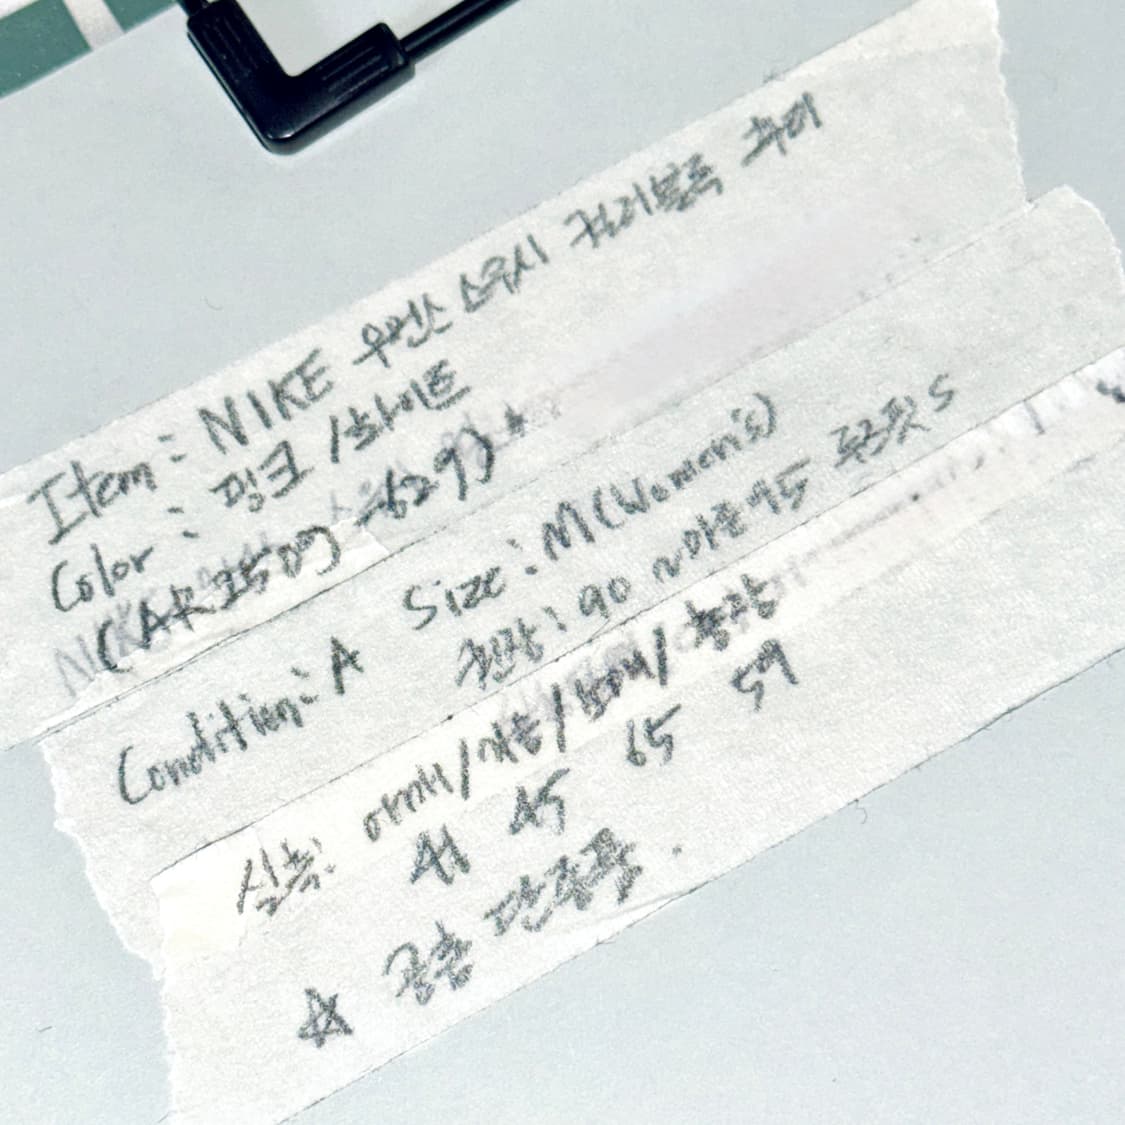 Item: NIKE 우먼스 스우시 컬러블록 후디
Color: 핑크/화이트
(AR3507-629)
Condition: A Size: M(Women's)
권장: 90~마른95 루즈핏S
실측: 어깨/가슴/소매/총장
41 45 65 59
☆ 공홈 단종품.